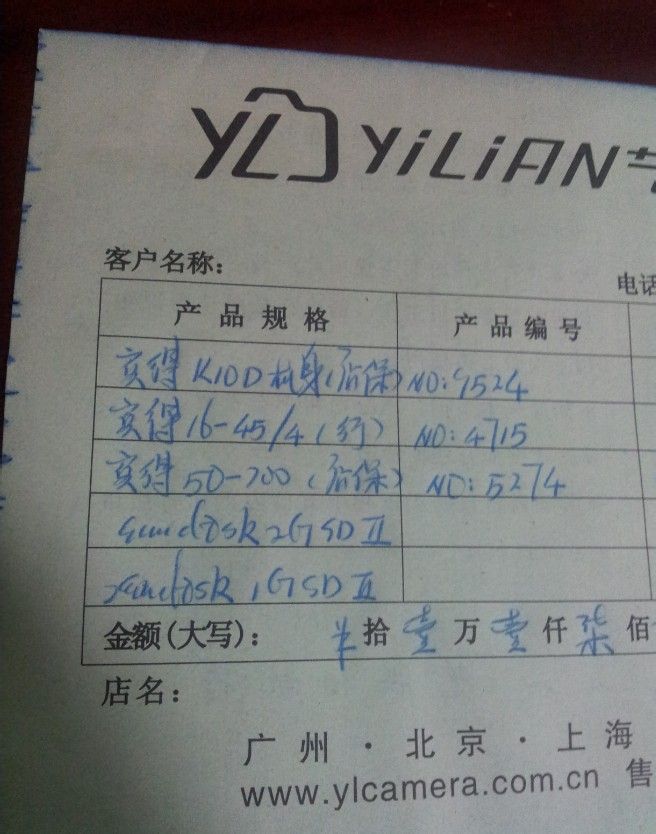 YL YiLiAN
客户名称：
电话
产品规格 产品编号
宾得 K10D 机身(店保) NO:9524
宾得 16-45/4(行) NO:4715
宾得 50-200(店保) NO:5274
sandisk 2G SD II
sandisk 1G SD II
金额(大写)： 拾 壹 万 壹 仟 柒 佰
店名：
广州·北京·上海
www.ylcamera.com.cn 售